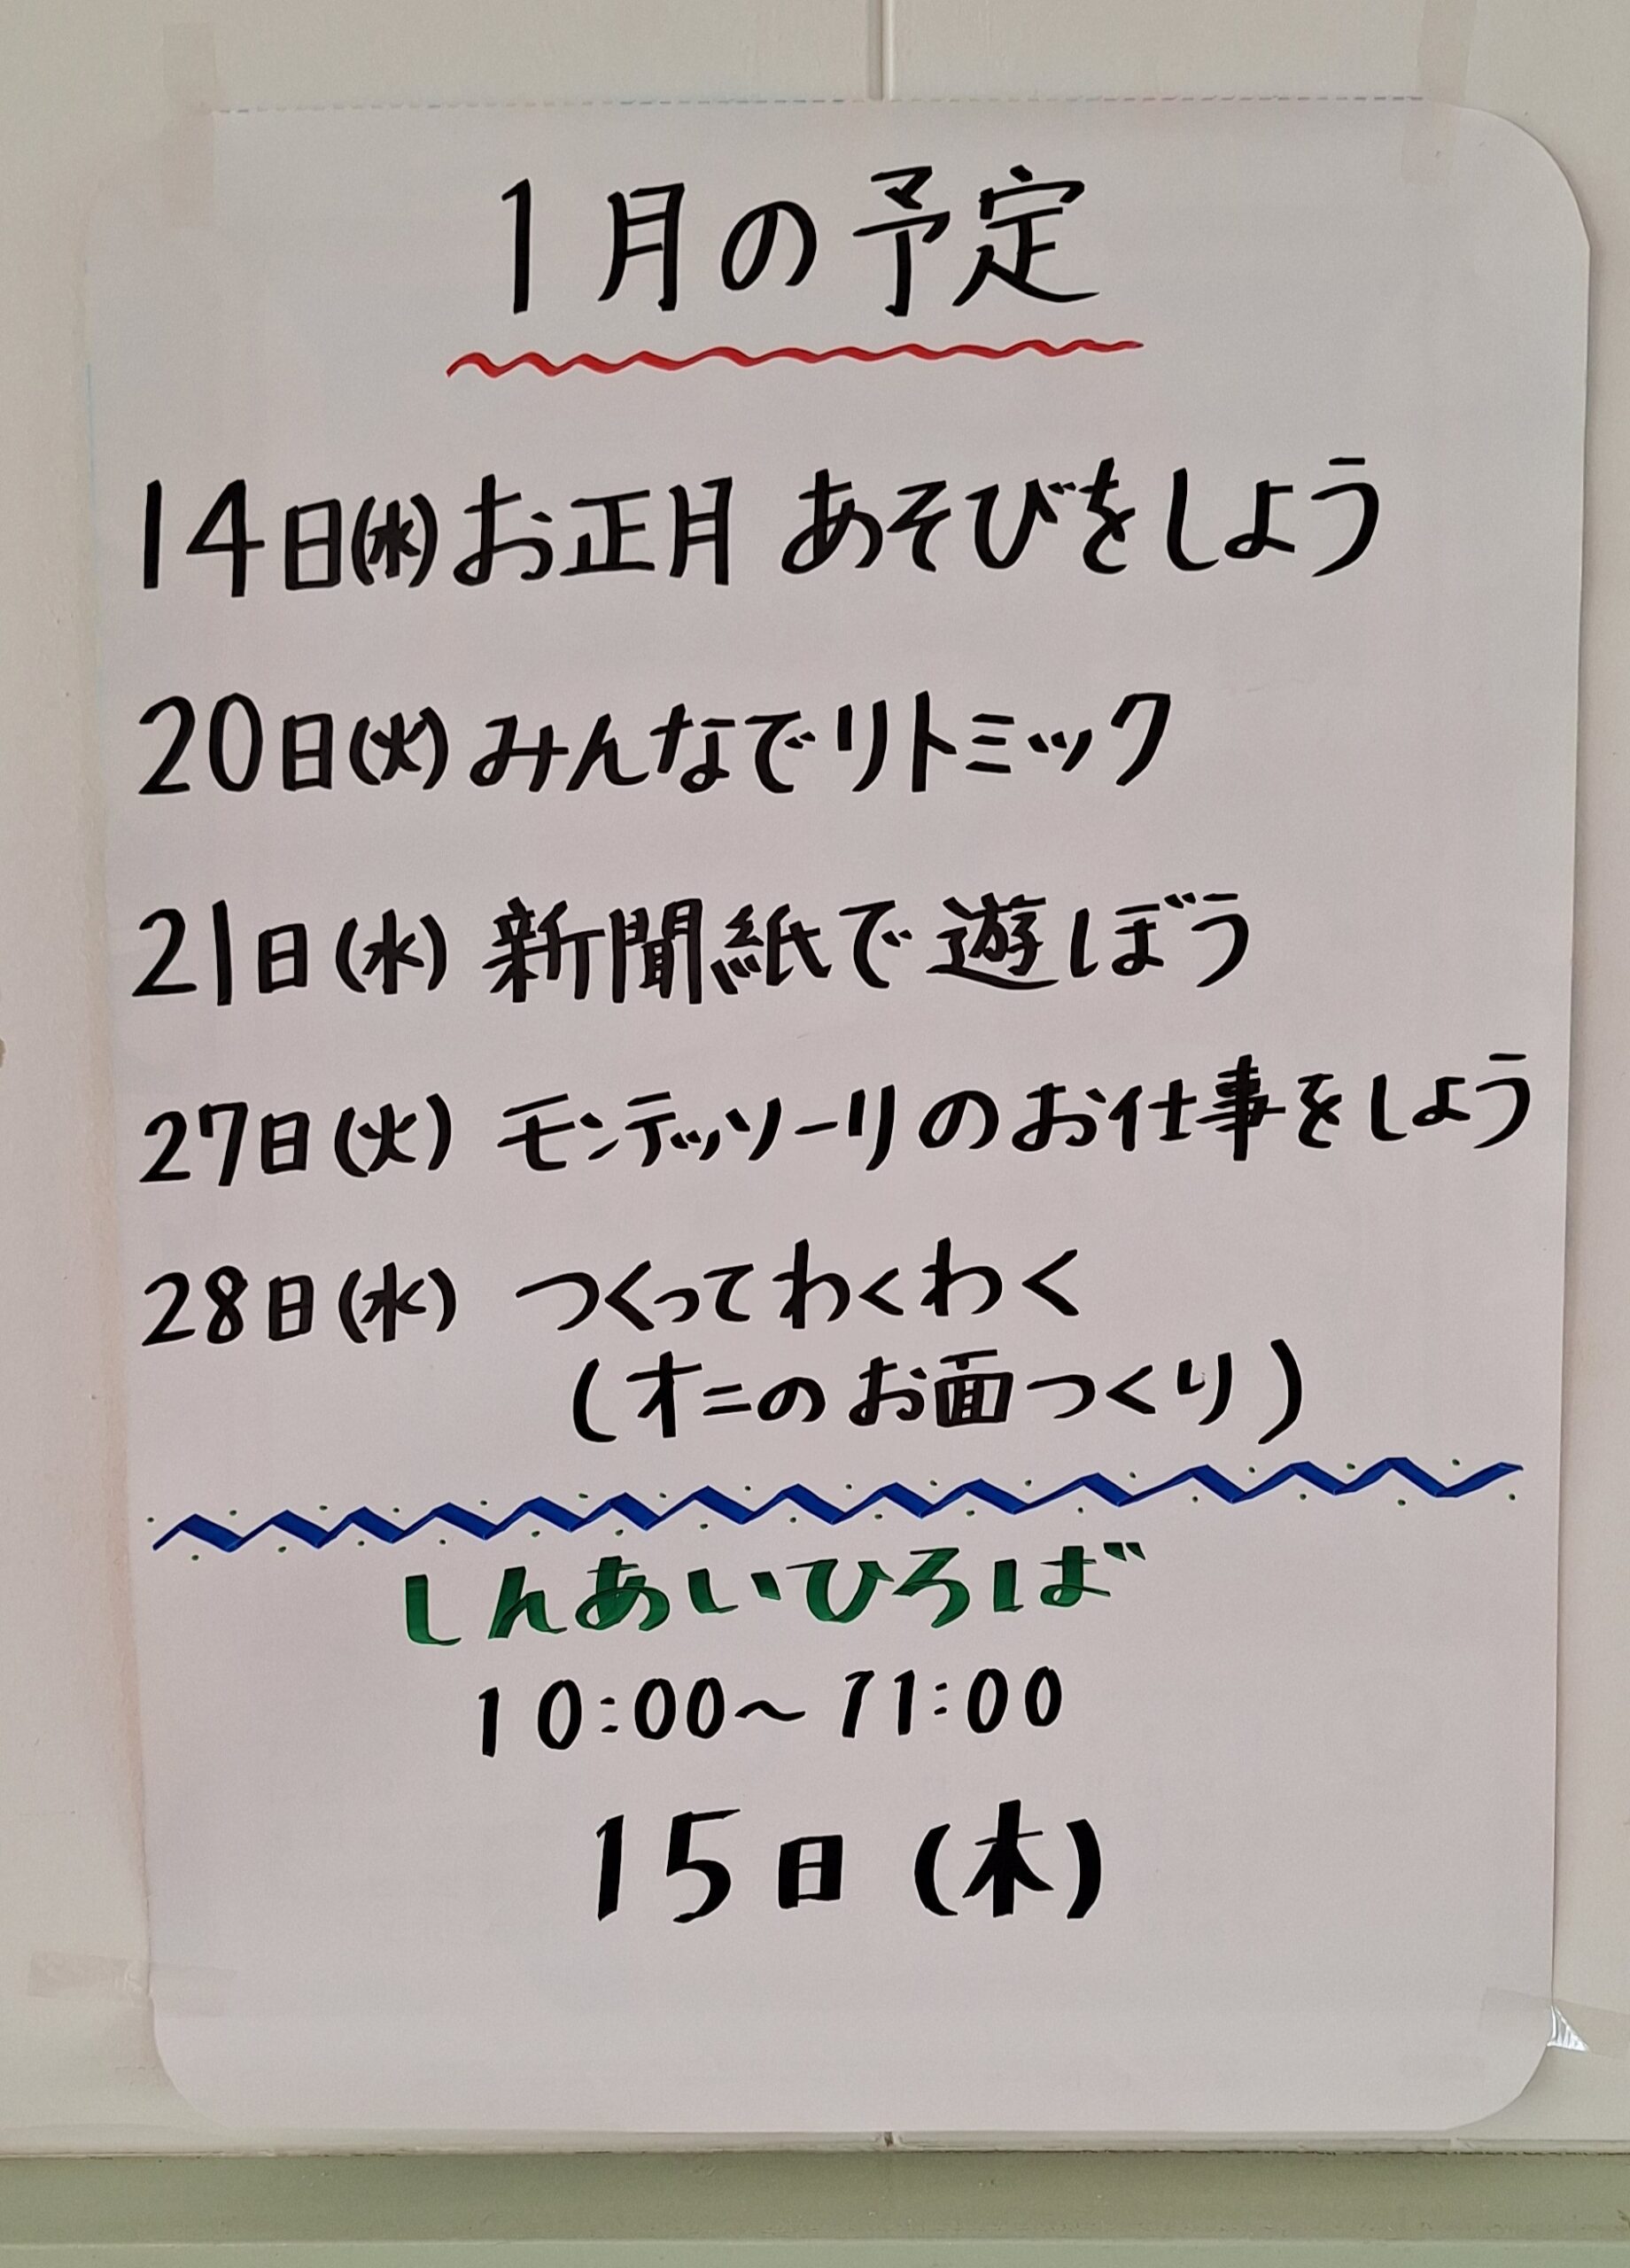 1月の予定
14日(水)お正月 あそびをしよう
20日(火)みんなでリトミック
21日(水) 新聞紙で遊ぼう
27日(火) モンテッソーリのお仕事をしよう
28日(水) つくってわくわく
(オニのお面つくり)
しんあいひろば
10:00～11:00
15日(木)